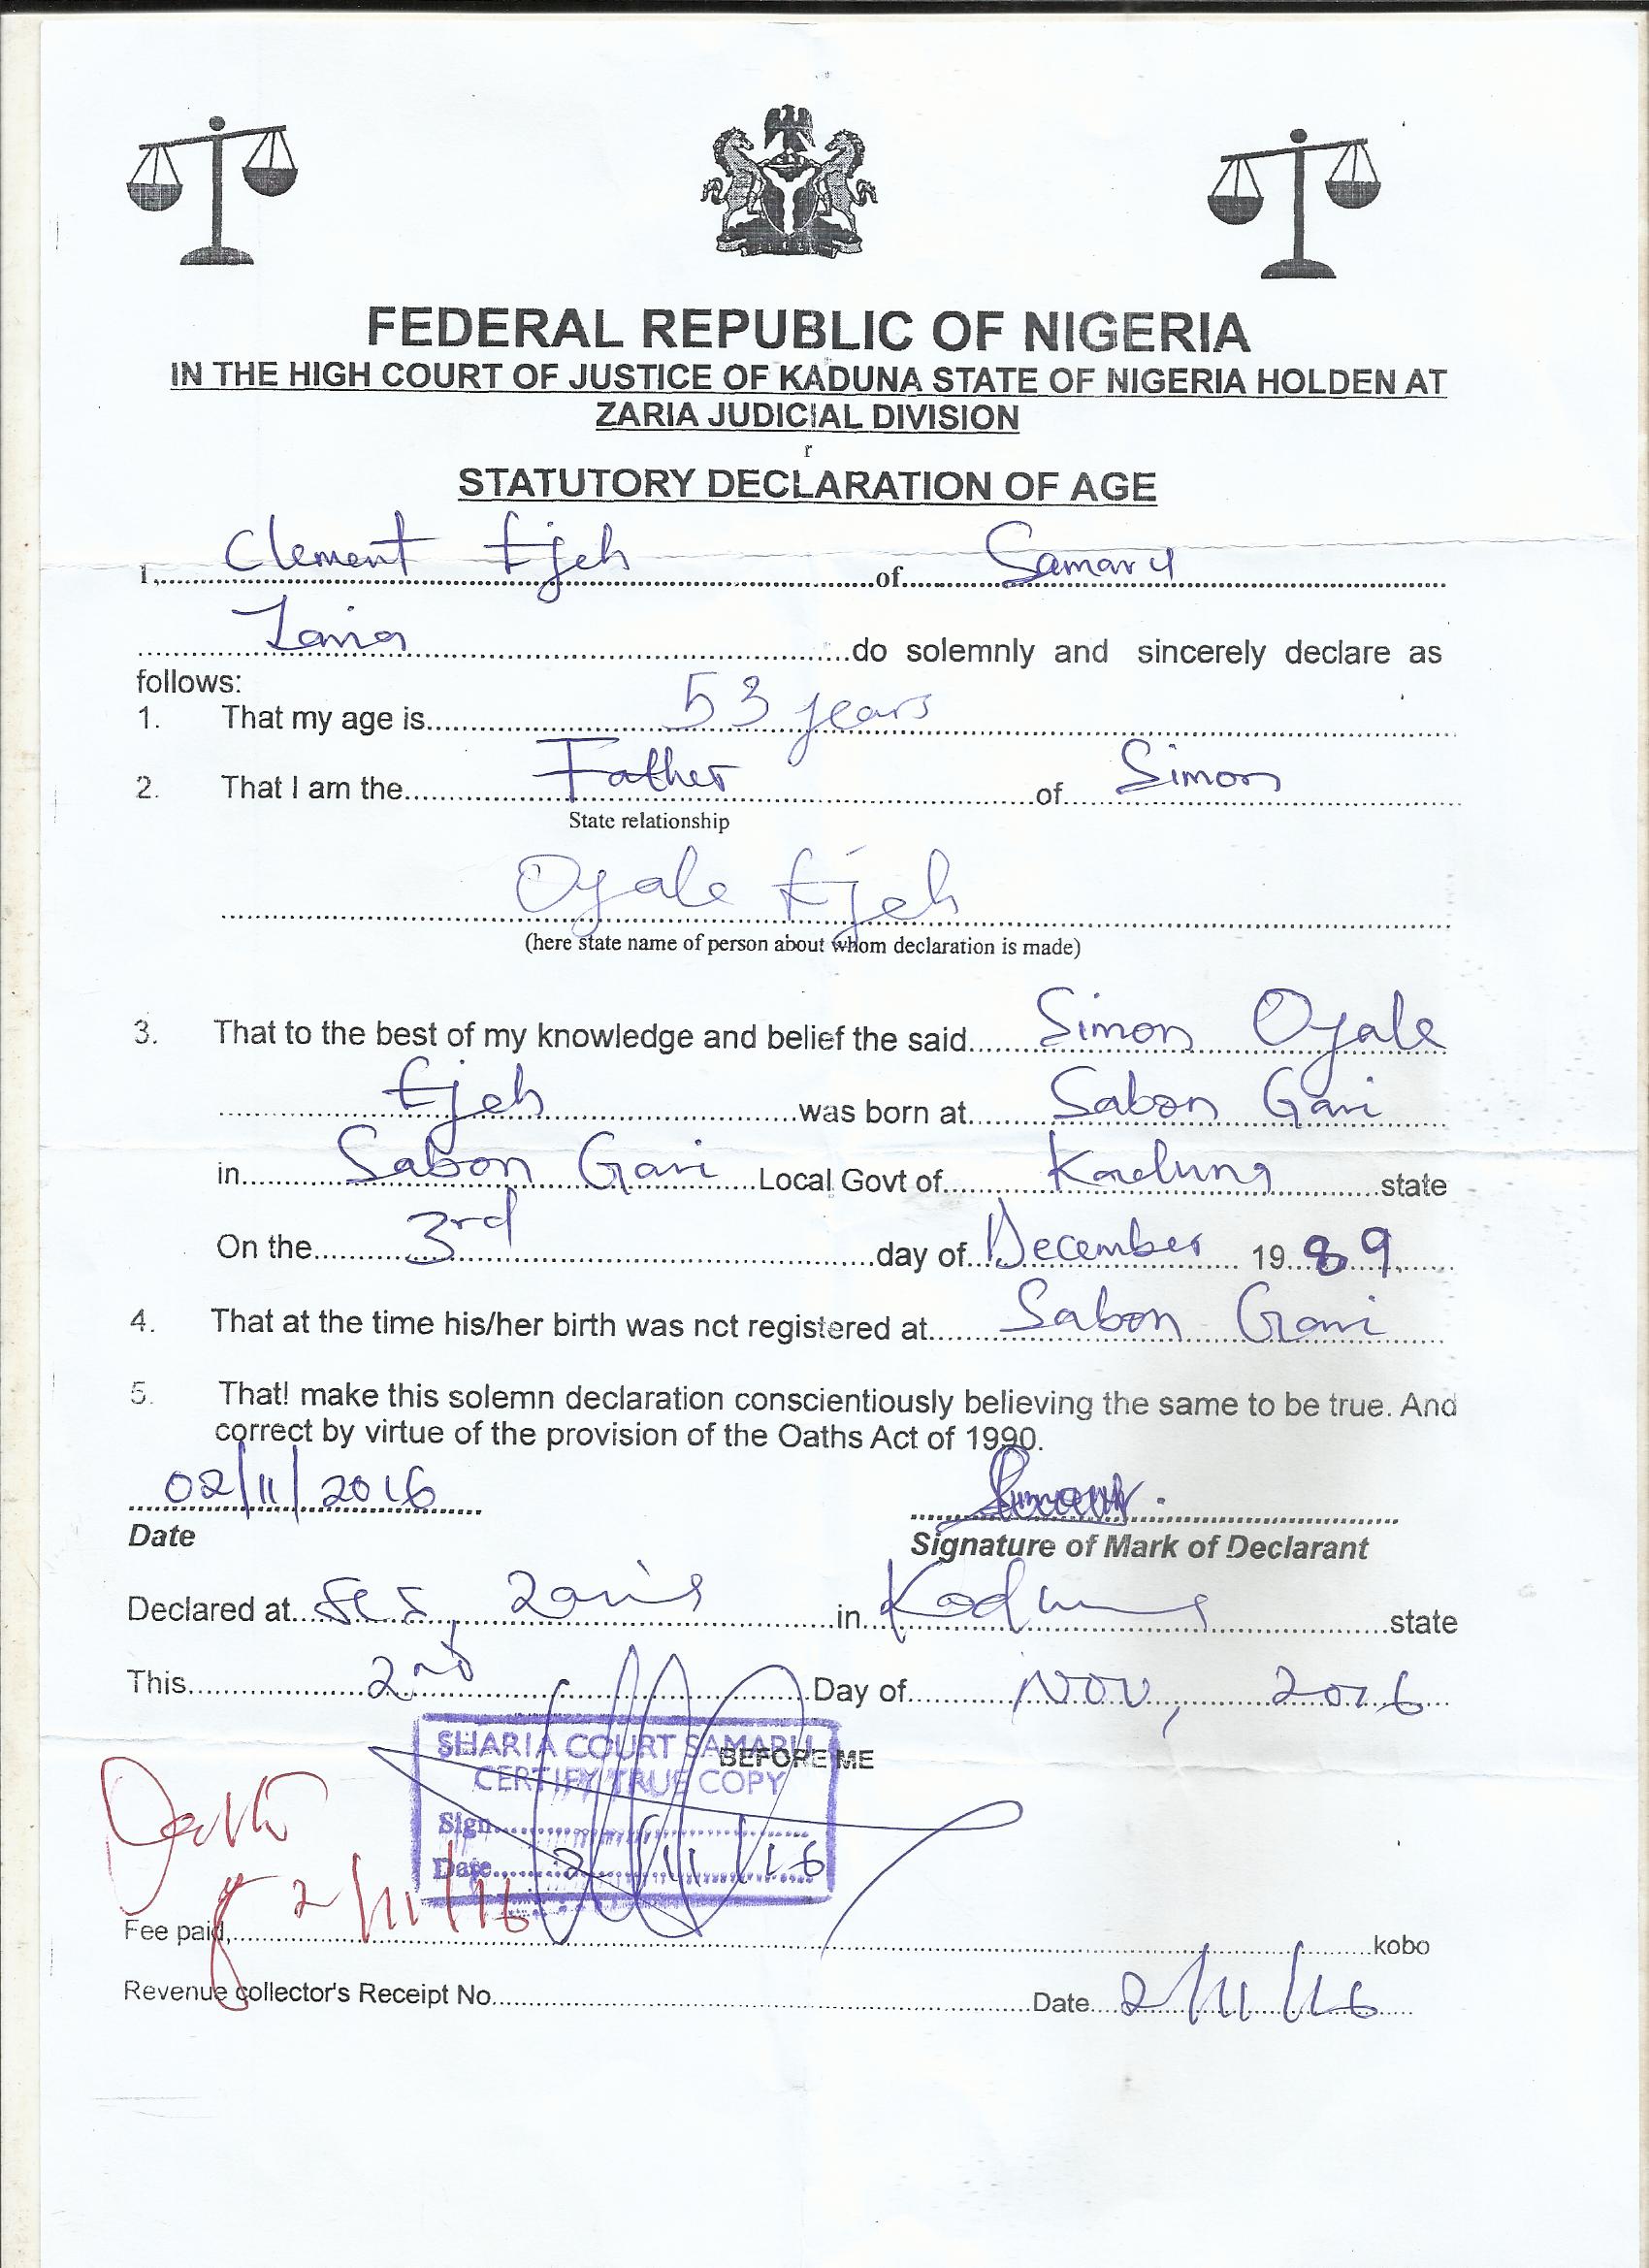 FEDERAL REPUBLIC OF NIGERIA
IN THE HIGH COURT OF JUSTICE OF KADUNA STATE OF NIGERIA HOLDEN AT
ZARIA JUDICIAL DIVISION
r
STATUTORY DECLARATION OF AGE
I,.....Clement Ejeh.....of.....Samaru
Zaria.....do solemnly and sincerely declare as
follows:
1. That my age is.....53 years
2. That I am the.....Father.....of.....Simon
State relationship
Oyale Ejeh
(here state name of person about whom declaration is made)
3. That to the best of my knowledge and belief the said.....Simon Oyale
Ejeh.....was born at.....Sabon Gari
in.....Sabon Gari.....Local Govt of.....Kaduna.....state
On the.....3rd.....day of.....December 19..89
4. That at the time his/her birth was nct registered at.....Sabon Gari
5. That! make this solemn declaration conscientiously believing the same to be true. And
correct by virtue of the provision of the Oaths Act of 1990.
02/11/2016
Date
Signature of Mark of Declarant
Declared at.....Zaria.....in.....Kaduna.....state
This.....2nd.....Day of.....Nov, 2016
BEFORE ME
SHARIA COURT SAMARU
CERTIFY TRUE COPY
Sign.....
Date.....2/11/16
2/11/16
Fee paid,.....kobo
Revenue collector's Receipt No.....Date.....2/11/16